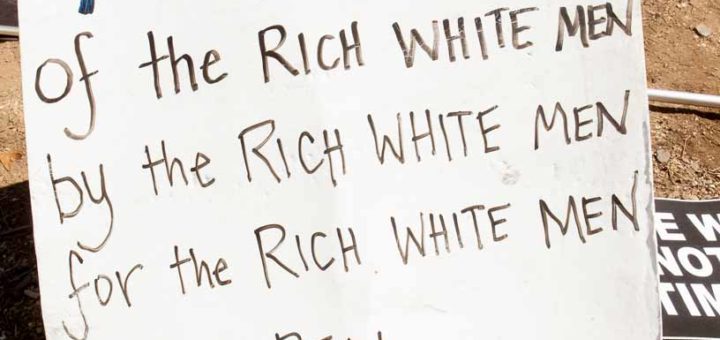 of the RICH WHITE MEN
by the RICH WHITE MEN
for the RICH WHITE MEN
E W
NOT
TIM